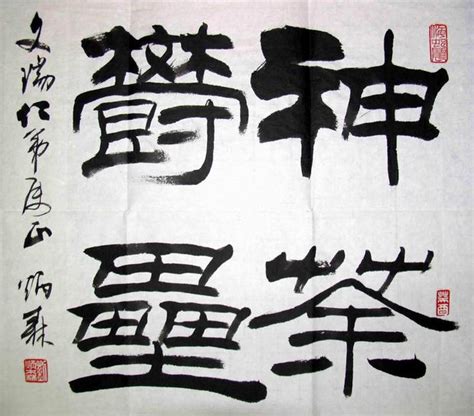 神荼
欝壘
文瑞仁弟正 炳森